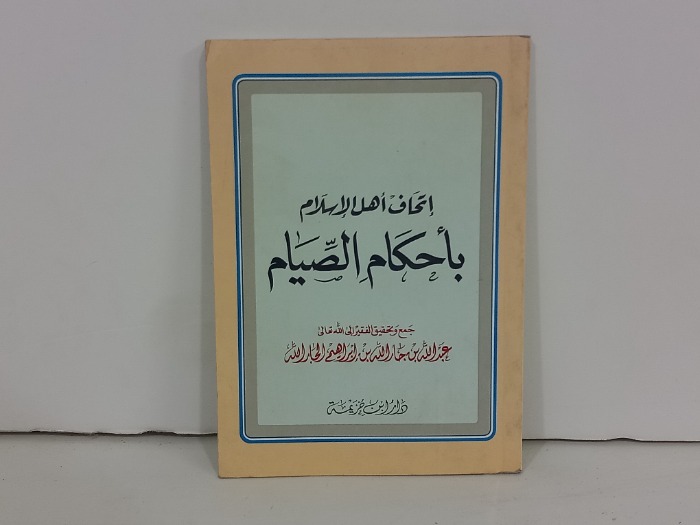 إتحاف أهل الإسلام
بأحكام الصيام
جمع وتحقيق الفقير إلى الله تعالى
عبد الله بن جار الله بن إبراهيم الجار الله
دار ابن خزيمة